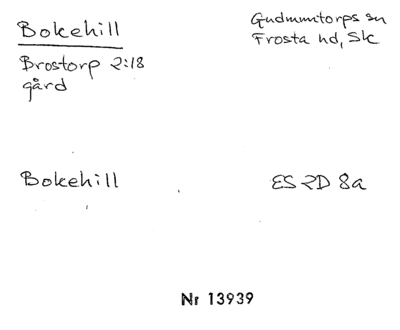 Bokehill
Gudmuntorps sn
Frosta hd, Sk
Brostorp 2:18
gård
Bokehill
ES 2D 8a
Nr 13939